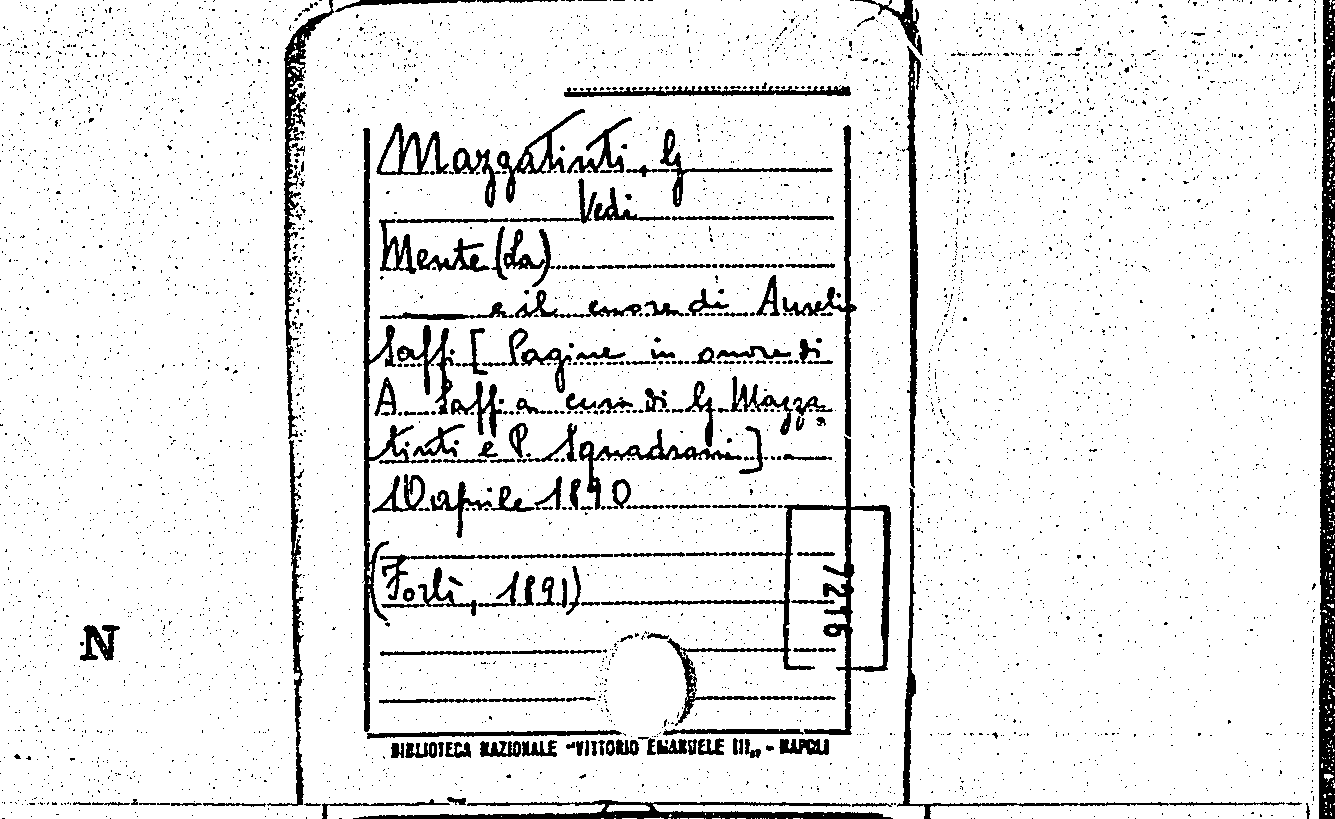 Mazzatinti, G
Vedi
Mente (La)
—— e il cuore di Aurelio
Saffi [Pagine in onore di
A. Saffi a cura di G Mazza=
tinti e P. Squadrani] . —
10 aprile 1890
(Forlì, 1891)
7216
N
BIBLIOTECA NAZIONALE "VITTORIO EMANUELE III„ - NAPOLI